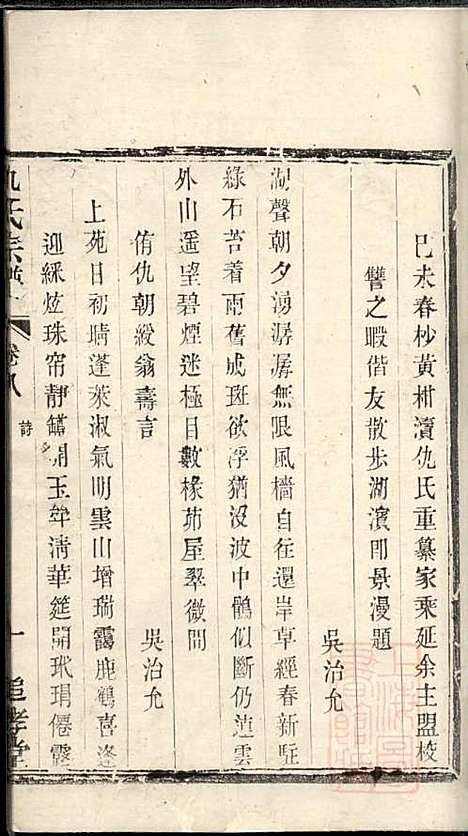 己未春杪黃柑瀆仇氏重纂家乘延余主盟校
讐之暇偕友散步湖濱即景漫題
吳治允
湖聲朝夕湧潺潺無限風檣自往還岸草經春新駐
綠石苔着雨舊成斑欲浮猶沒波中鶴似斷仍連雲
外山遥望碧煙迷極目數椽茆屋翠微間
侑仇朝綬翁壽言
吳治允
上苑日初晴蓬萊淑氣明雲山增瑞靄鹿鶴喜逢
迎綵炫珠帘靜鐫開玉斝清華筵開玳瑁僊醞
仇氏宗譜
卷八
詩
一
追孝堂